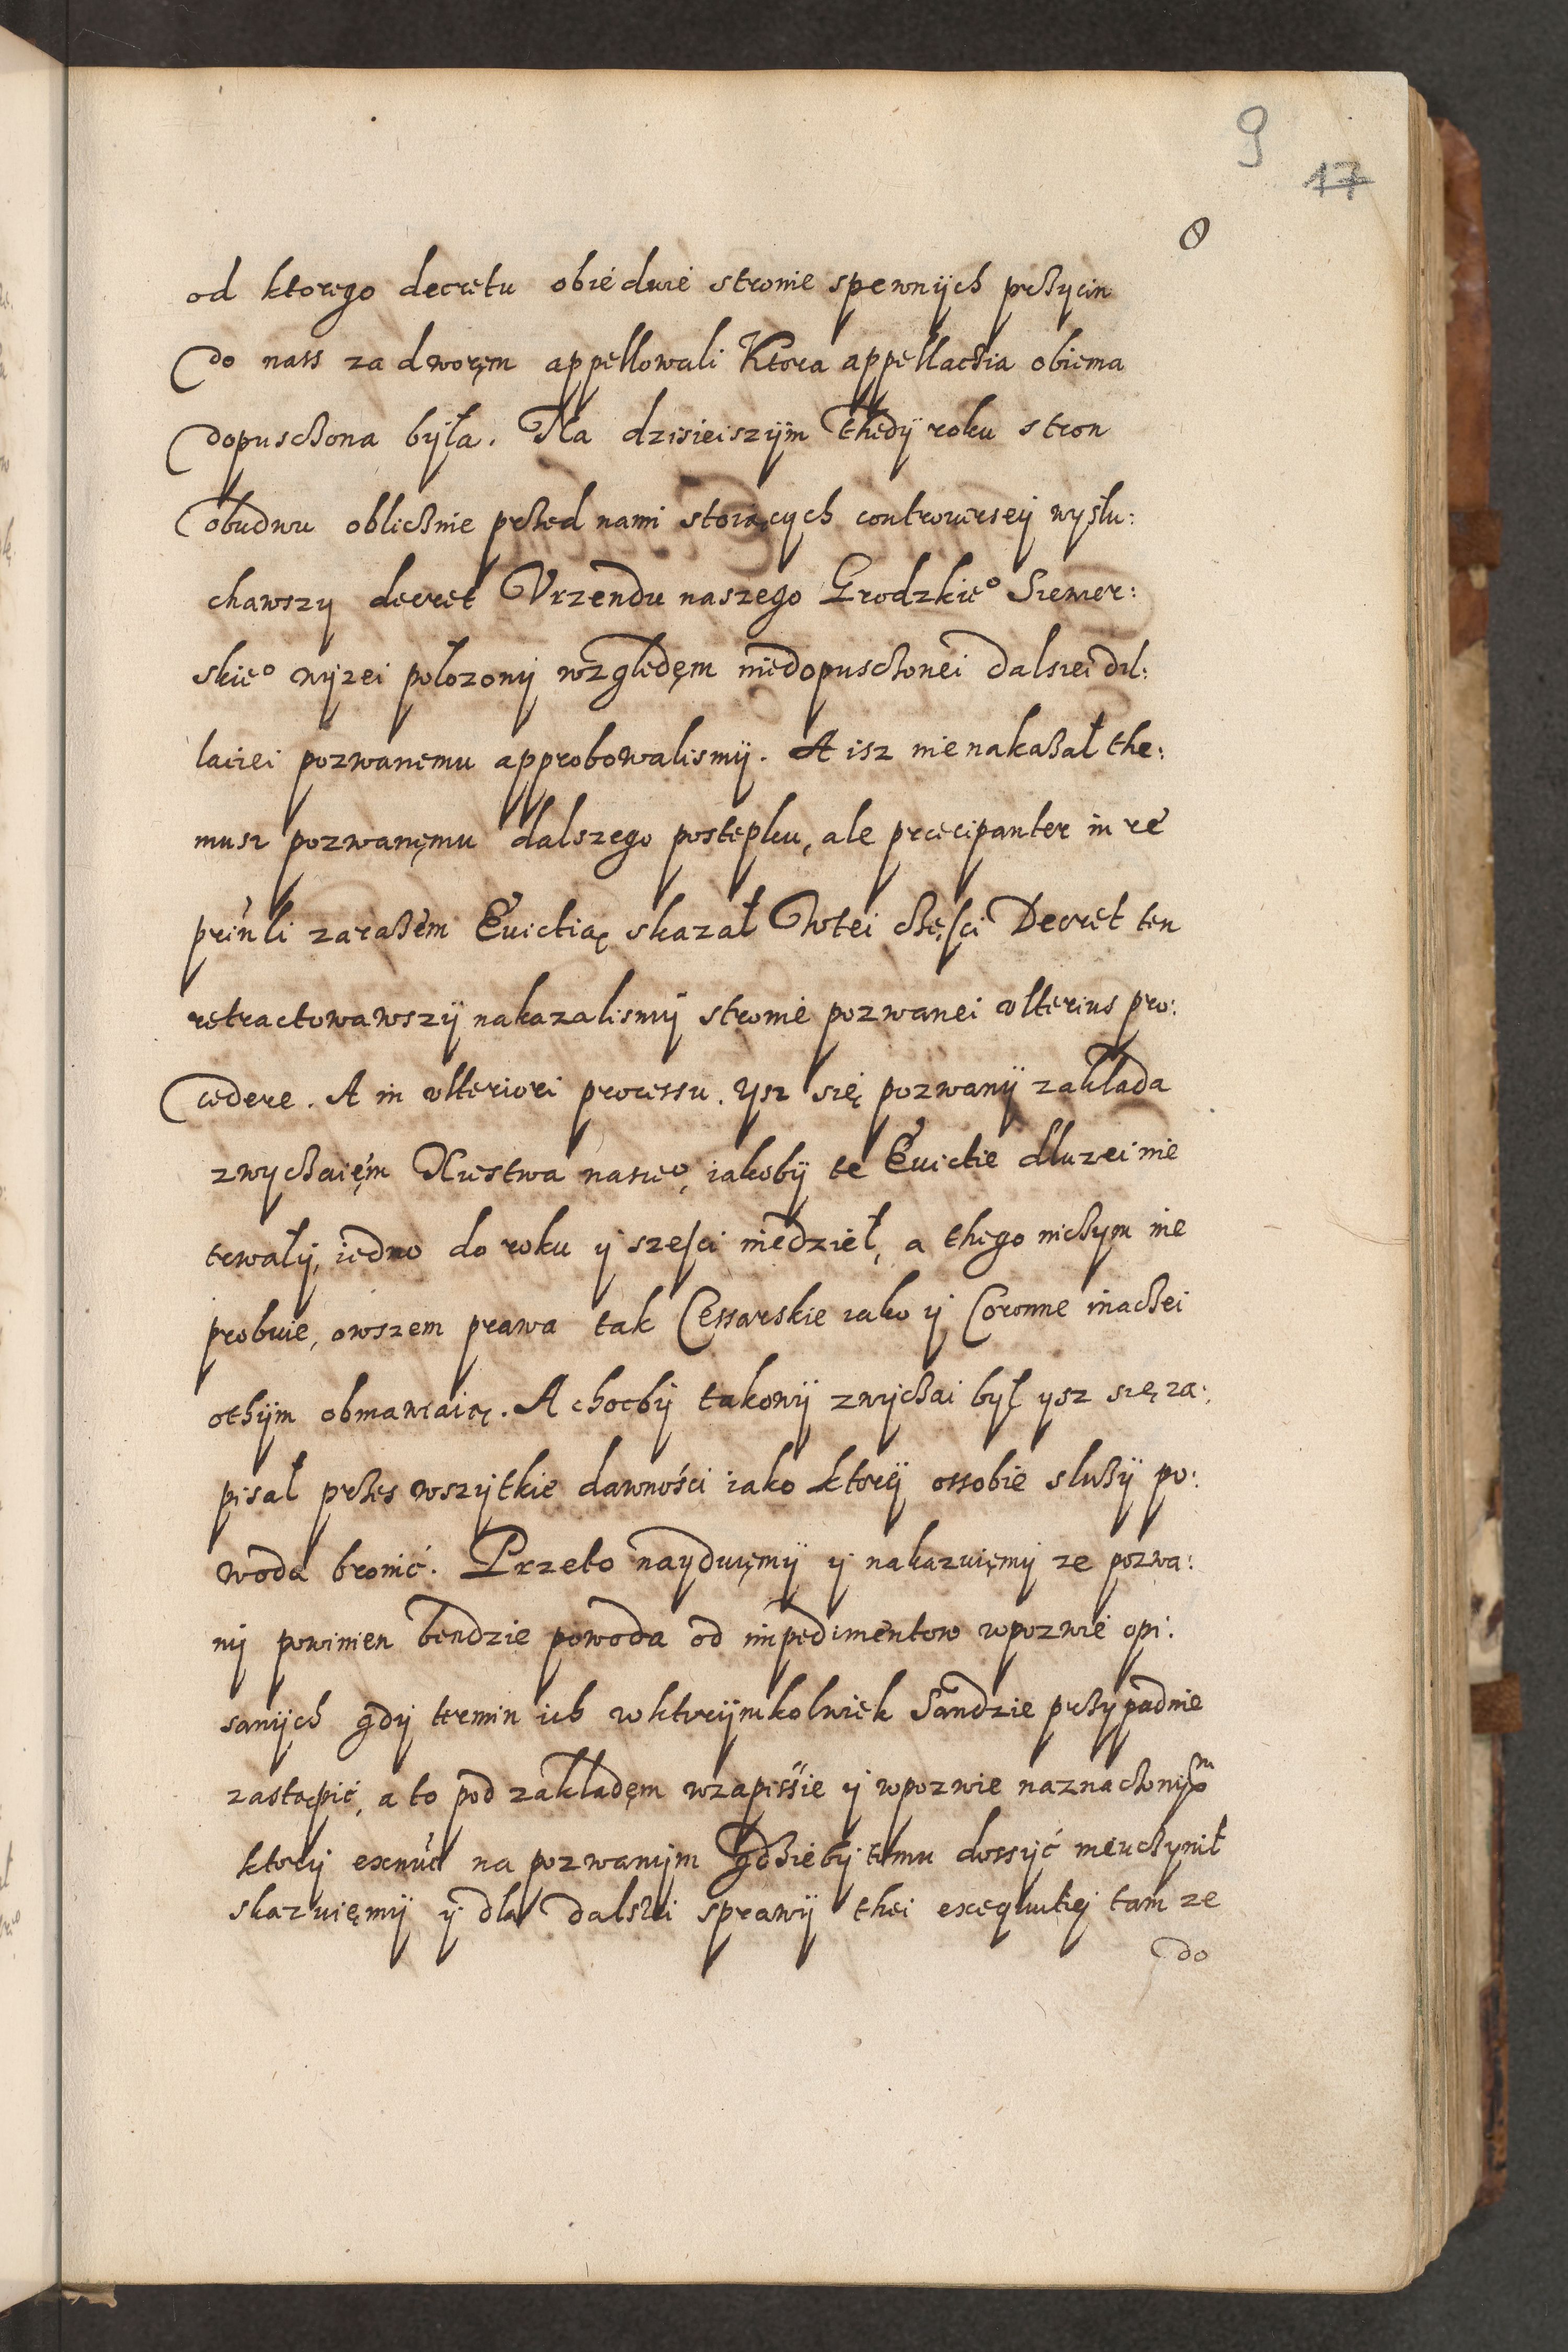 9
17
od ktorego decretu obiedwie stronie spewnÿch prziczin
do nass za dworęm appellowali Ktora appellaczia obiema
dopusczona bÿła. Na dzisieiszÿm thedÿ roku stron
obudwu obliecznie przed nami stoiącÿch controuersÿ wysłu:
chawszy decret Vrzendu naszego Grodzkie⁰ Siewier:
skie⁰ wÿzei położonÿ względęm niedopusczonei dalsiei dil:
laciei pozwanemu approbowalismÿ. A isz nie nakazał the:
musz pozwanęmu dalszego postepku, ale præcipanter in re
prinⁱli zarazem Euictią skazał Wtei częsci Decret ten
retractowawszÿ nakazalismÿ stronie pozwanei vlterius pro:
cedere. A in vlteriori processu. ysz się pozwanÿ zakłada
zwyczaięm Xiestwa nasze⁰, iakobÿ te Euictie dłuzei nie
trwałÿ, iedno do roku ÿ szesci niedzieł, a thego niczym nie
probuie, owszem prawa tak Cessarskie iako ÿ Coronne inaczei
othÿm obmawiaią. A chocbÿ takowÿ zwÿczai był ysz się za:
pisał przes wszÿtkie dawności iako ktorÿ ossobie służÿ po:
woda bronić. Przeto nayduięmÿ ÿ nakazuięmÿ ze pozwa:
nÿ powinien bendzie powoda od impedimentow wpozwie opi:
sanÿch gdÿ termin ich wktorÿmkolwiek Sandzie przypadnie
zastąpić, a to pod zakładęm wzapissie ÿ wpozwie naznaczonÿm
ktorÿ exnuⁿc na pozwanÿm gdziebÿ temu dossÿć nieuczynił
skazuięmÿ ÿ dla dalszei sprawÿ thei exequutiej tam ze
do